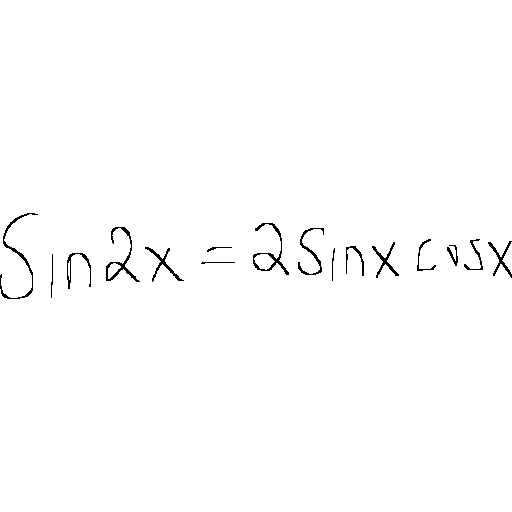 Sin2x = 2Sinx cosx